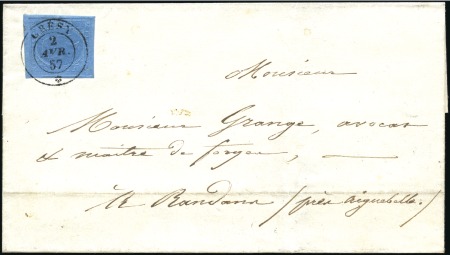 GRESY
2
AVR.
57
Monsieur
Monsieur Grange, avocat
& maître de forges,
à Randens / près Aiguebelle. /